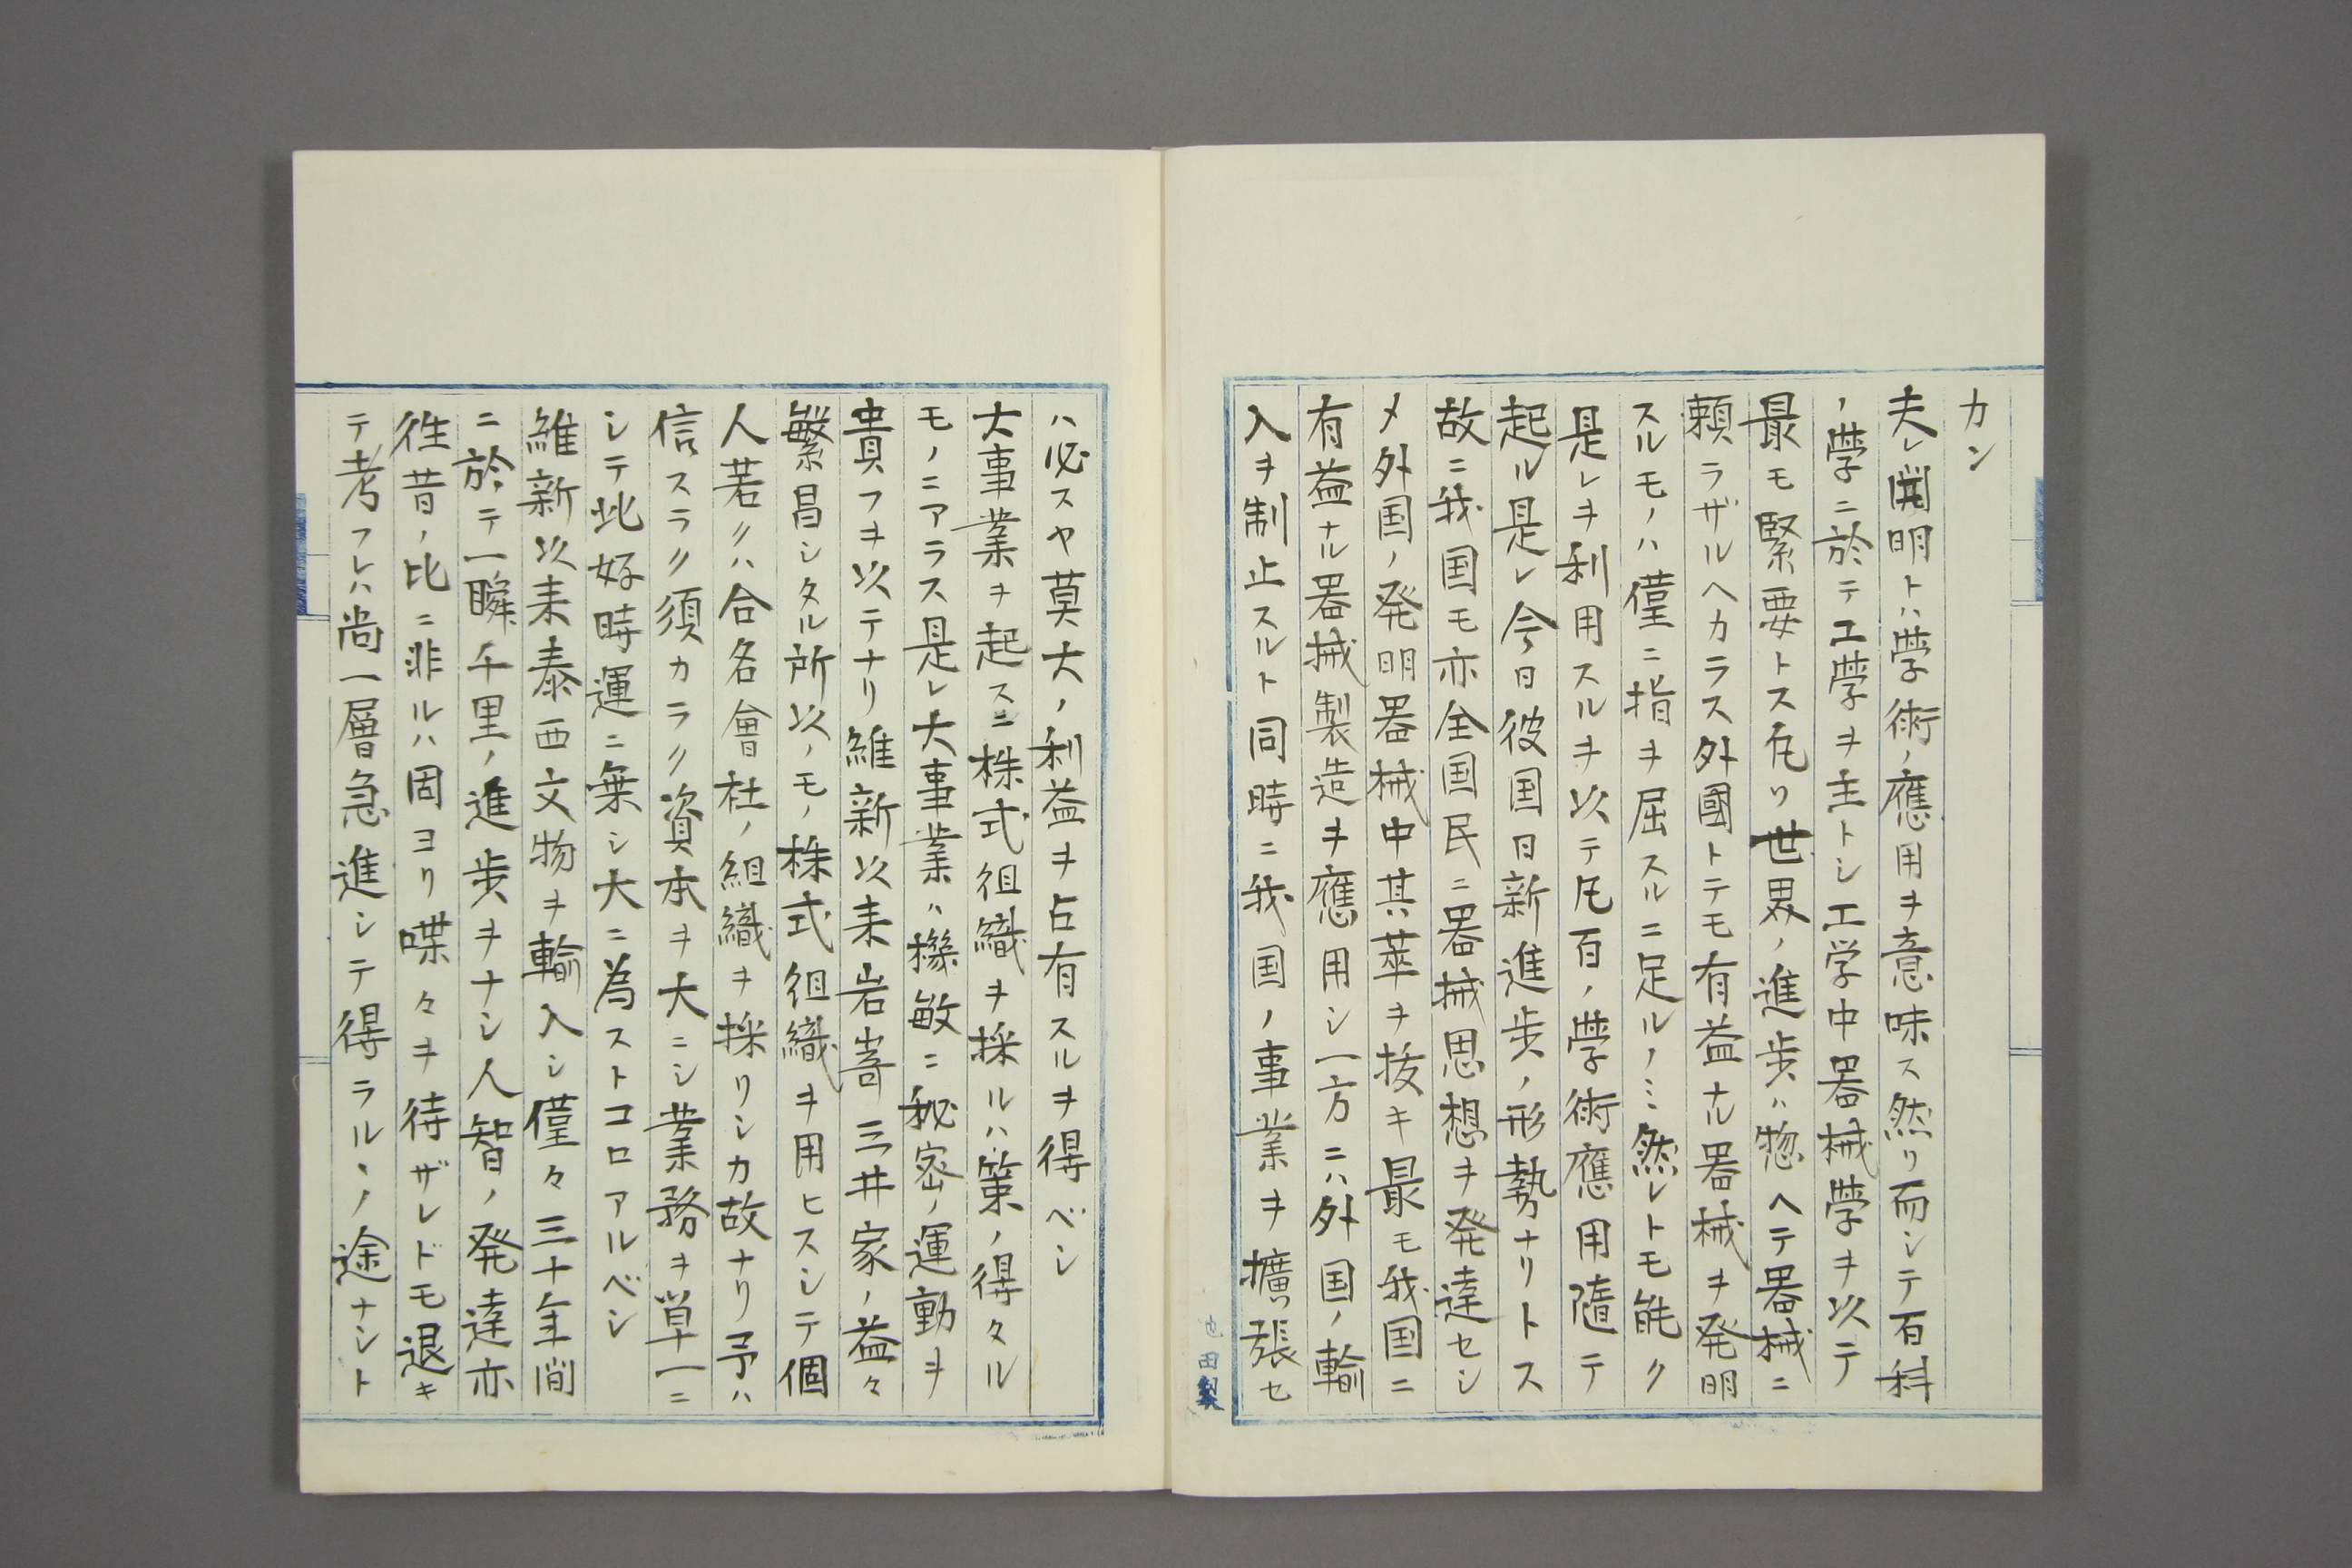 カン
夫レ開明トハ學術ノ應用ヲ意味ス然リ而シテ百科
ノ學ニ於テ工學ヲ主トシ工学中器械學ヲ以テ
最モ緊要トス凡リ世界ノ進歩ハ惣ヘテ器械ニ
頼ラザルヘカラス外國トテモ有益ナル器械ヲ発明
スルモノハ僅ニ指ヲ屈スルニ足ルノミ然レトモ能ク
是レヲ利用スルヲ以テ凡百ノ學術應用隨テ
起ル是レ今日彼国日新進歩ノ形勢ナリトス
故ニ我国モ亦全国民ニ器械思想ヲ発達セシ
メ外国ノ発明器械中其萃ヲ抜キ最モ我国ニ
有益ナル器械製造ヲ應用シ一方ニハ外国ノ輸
入ヲ制止スルト同時ニ我国ノ事業ヲ擴張セ
田製
ハ必スヤ莫大ノ利益ヲ占有スルヲ得ベシ
大事業ヲ起スニ株式徂織ヲ採ルハ策ノ得タル
モノニアラス是レ大事業ハ機敏ニ秘密ノ運動ヲ
貴フヲ以テナリ維新以来岩嵜三井家ノ益々
繁昌シタル所以ノモノ株式徂織ヲ用ヒスシテ個
人若クハ合名會社ノ組織ヲ採リシカ故ナリ予ハ
信スラク須カラク資本ヲ大ニシ業務ヲ単一ニ
シテ此好時運ニ乗シ大ニ為ストコロアルベシ
維新以来泰西文物ヲ輸入シ僅々三十年間
ニ於テ一瞬千里ノ進歩ヲナシ人智ノ発達亦
徃昔ノ比ニ非ルハ固ヨリ喋々ヲ待ザレドモ退キ
テ考フレハ尚一層急進シテ得ラルヽノ途ナシト